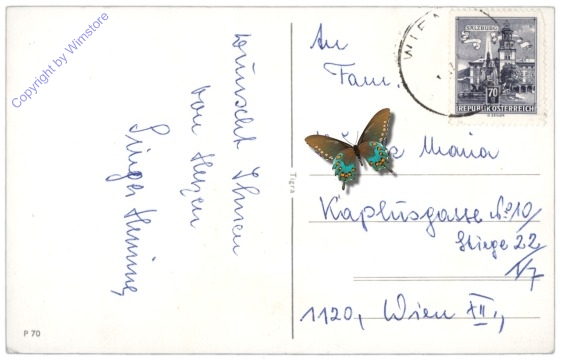 Copyright by Wimstore
wünscht Ihnen
von Herzen
P 70
Tigra
An
Fam.
Maria
Kaplusgasse No 10/
Stiege 22
/V7
1120, Wien XII.,
WIEN
SALZBURG
70
REPUBLIK ÖSTERREICH